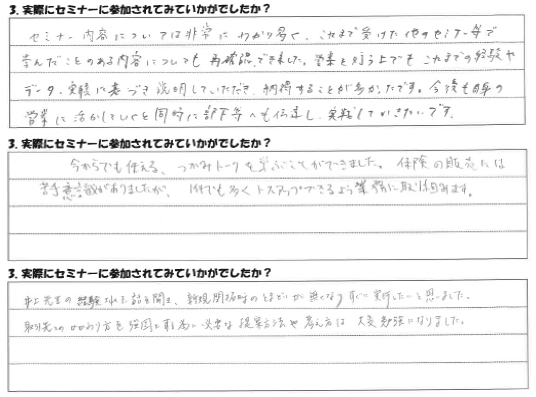 3. 実際にセミナーに参加されてみていかがでしたか？
セミナー内容については非常にわかり易く、これまで受けた他のセミナー等で
学んだことのある内容についても再確認できました。営業を行う上でもこれまでの経験や
データ、実績に基づき説明していただき、納得することが多かったです。今後も自身の
営業に活かしていくと同時に部下等へも伝達し、実践していきたいです。
3. 実際にセミナーに参加されてみていかがでしたか？
今からでも使える、つかみトークを学ぶことができました。保険の販売には
苦手意識がありましたが、1件でも多くトスアップできるよう業務に取り組みます。
3. 実際にセミナーに参加されてみていかがでしたか？
井上先生の経験された話を聞き、新規開拓時のとまどいが無くなりすぐに実行したいと思いました。
取引先との関わり方を強固にする為に必要な提案方法や考え方は大変勉強になりました。